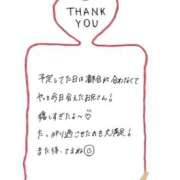 THANK
YOU
予定してた日は都合が合わなくて
やっと今日会えたお兄さん!
癒しすぎたよ〜♡
たっぷり過ごせたのも大満足!
また待ってるね☺